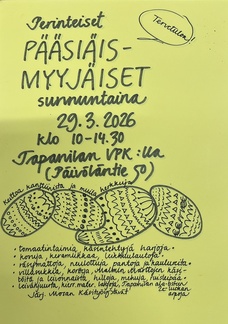 Perinteiset
Tervetuloa!
PÄÄSIÄIS-
MYYJÄISET
sunnuntaina
29.3.2026
klo 10-14.30
Tapanilan VPK:lla
(Päivöläntie 50)
Kahvia, kanttiinista ja muita herkkuja
• tomaatintaimia, käsintehtyjä harjoja
• koruja, keramiikkaa, leikkuulautoja
• räsymattoja, neulottuja pantoja & kaulureita
• villasukkia, kortteja, Malmin Marttojen käsi-
töitä ja leivonnaisia, hilloja, mehuja,
• leivonnaisia, Tapanilan ala-asteen
Järj. Mosan Käsityöystävät